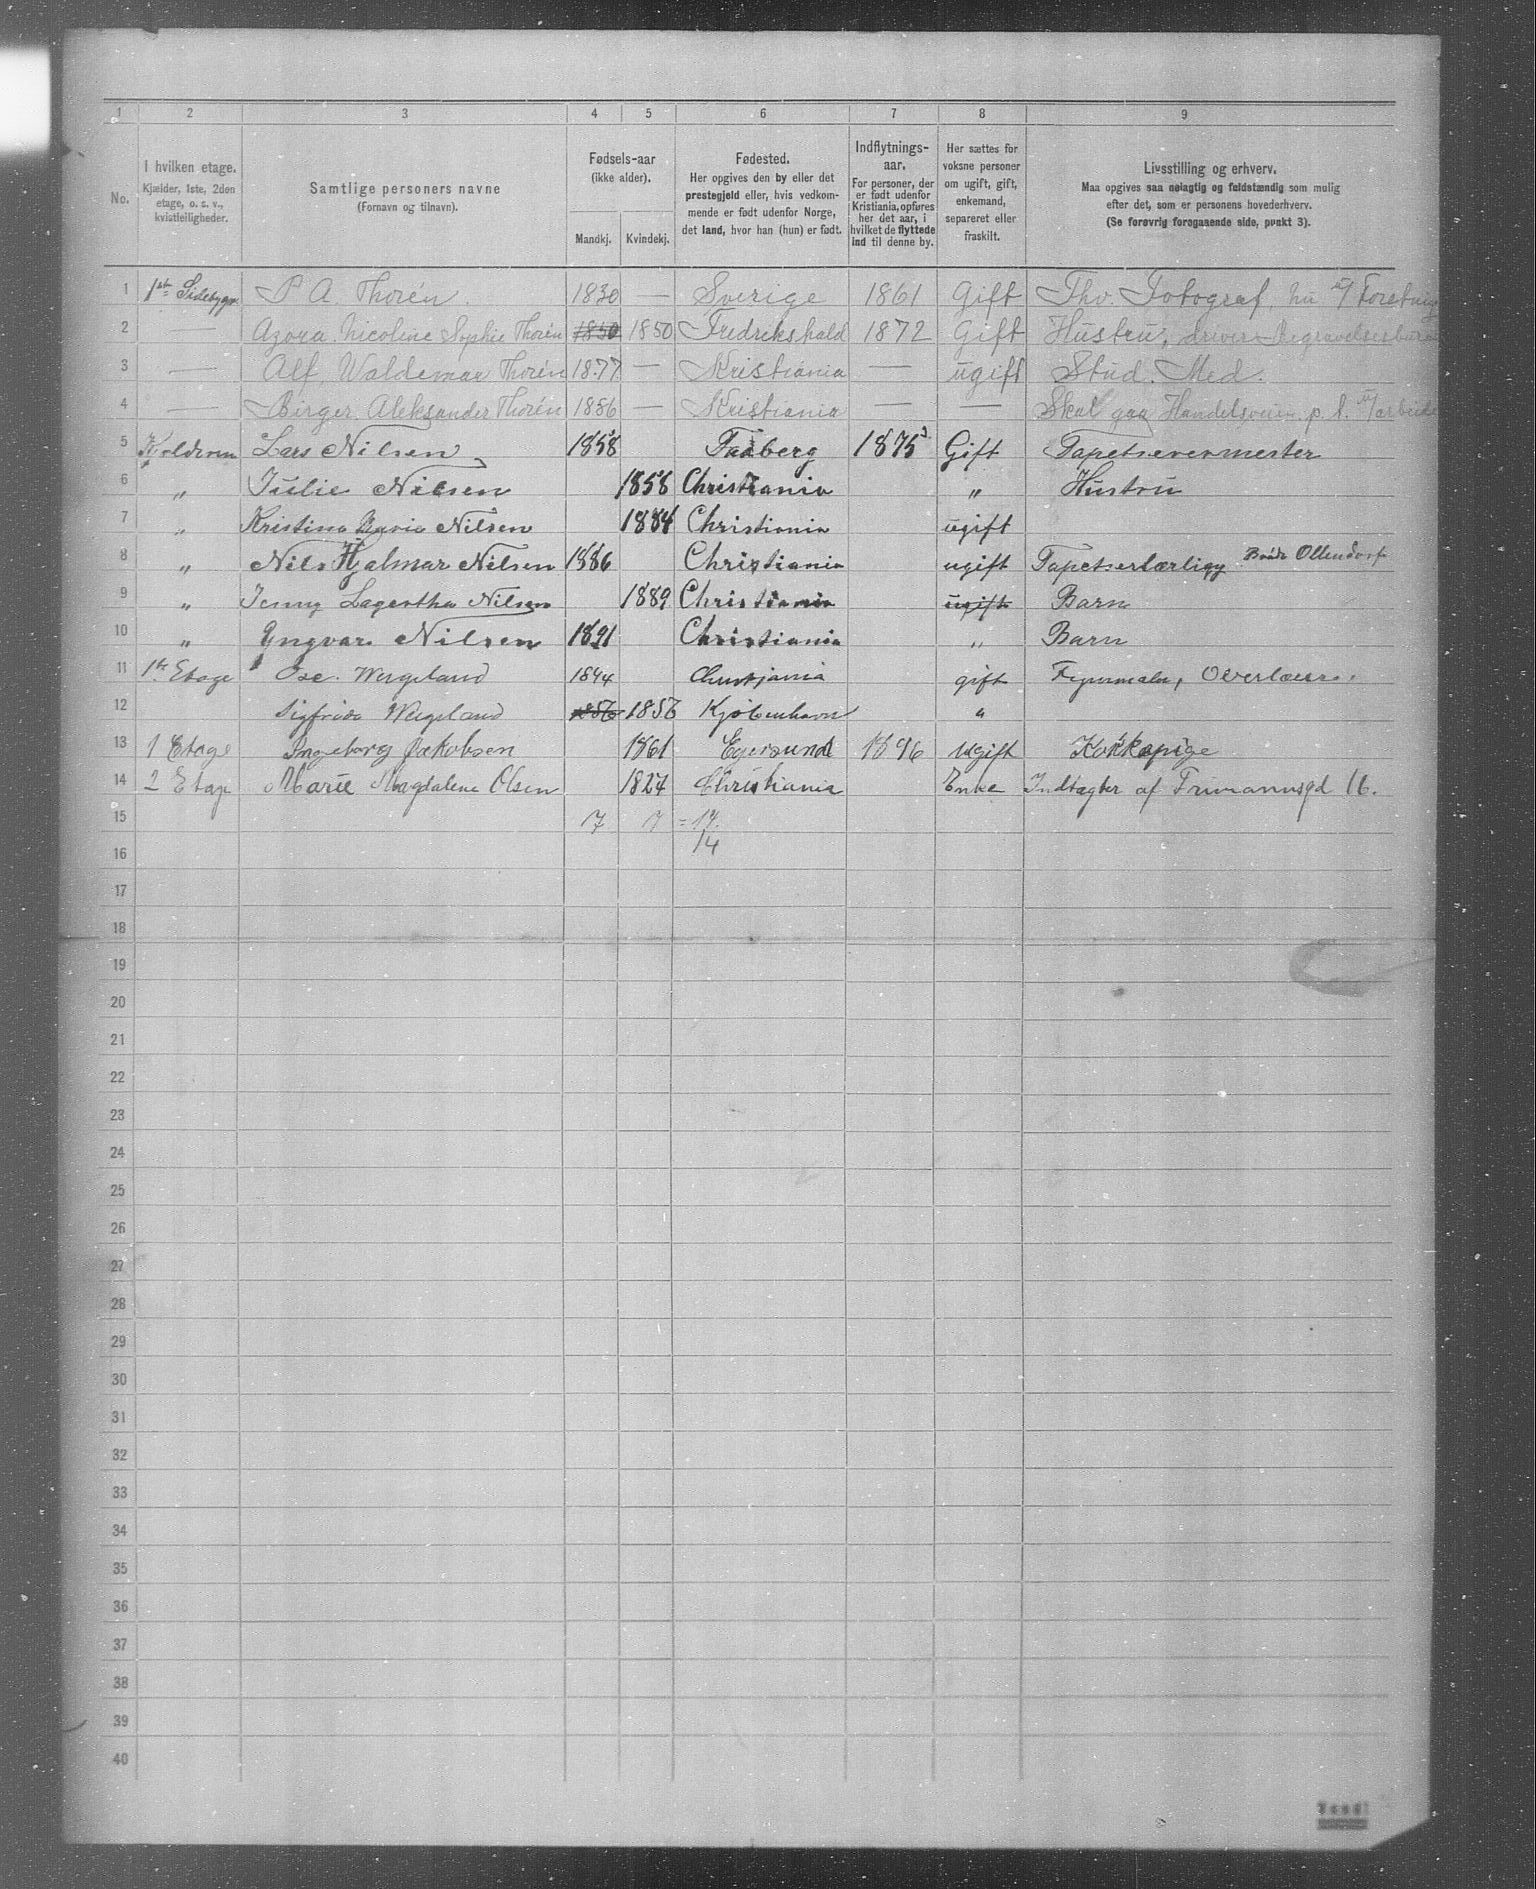 1 2 3 4 5 6 7 8 9
No.
I hvilken etage.
Kjælder, 1ste, 2den
etage, o. s. v.,
kvistleiligheder.
Samtlige personers navne
(Fornavn og tilnavn).
Fødsels-aar
(ikke alder).
Mandkj. Kvindekj.
Fødested.
Her opgives den by eller det
prestegjeld eller, hvis vedkom-
mende er født udenfor Norge,
det land, hvor han (hun) er født.
Indflytnings-
aar.
For personer, der
er født udenfor
Kristiania, opføres
her det aar, i
hvilket de flyttede
ind til denne by.
Her sættes for
voksne personer
om ugift, gift,
enkemand,
separeret eller
fraskilt.
Livsstilling og erhverv.
Maa opgives saa nøiagtig og fuldstændig som mulig
efter det, som er personens hovederhverv.
(Se forøvrig foregaaende side, punkt 3).
1 1ste Sidebygn. P A. Thorén. 1830 — Sverige 1861 Gift Fotograf, nu u/ Foretning
2 — Azora Nicoline Sophie Thorén 1850 1850 Fredrikshald 1872 Gift Hustru, driver Begravelsesburau
3 — Alf. Waldemar Thorén 1877. — Kristiania — ugift Stud. Med.
4 — Birger Aleksander Thorén 1886 — Kristiania — — Skal gaa Handelsveien p. t. u/arbeide
5 Kjelderen Lars Nilsen 1858 Faaberg 1875 Gift Tapetserermester
6 „ Julie Nilsen 1858 Christiania „ Hustru
7 „ Kristina Maria Nilsen 1884 Christiania ugift
8 „ Nils Hjalmar Nilsen 1886 Christiania ugift Tapetserlærling Ollendorf
9 „ Jenny Lagertha Nilsen 1889 Christiania ugift Barn
10 „ Yngvar Nilsen 1891 Christiania „ Barn
11 1ste Etage Osc. Wergeland 1844 Christiania gift Figurmaler, Overlærer.
12 Sigfrida Wergeland 1856 1856 Kjøbenhavn „
13 1 Etage Ingeborg Jakobsen 1861 Egersund 1896 Ugift Kokkepige
14 2 Etage Marie Magdalene Olsen 1827 Christiania Enke Indtægter af Frimannsgd 16.
15 7 7 = 14.
14
16
17
18
19
20
21
22
23
24
25
26
27
28
29
30
31
32
33
34
35
36
37
38
39
40